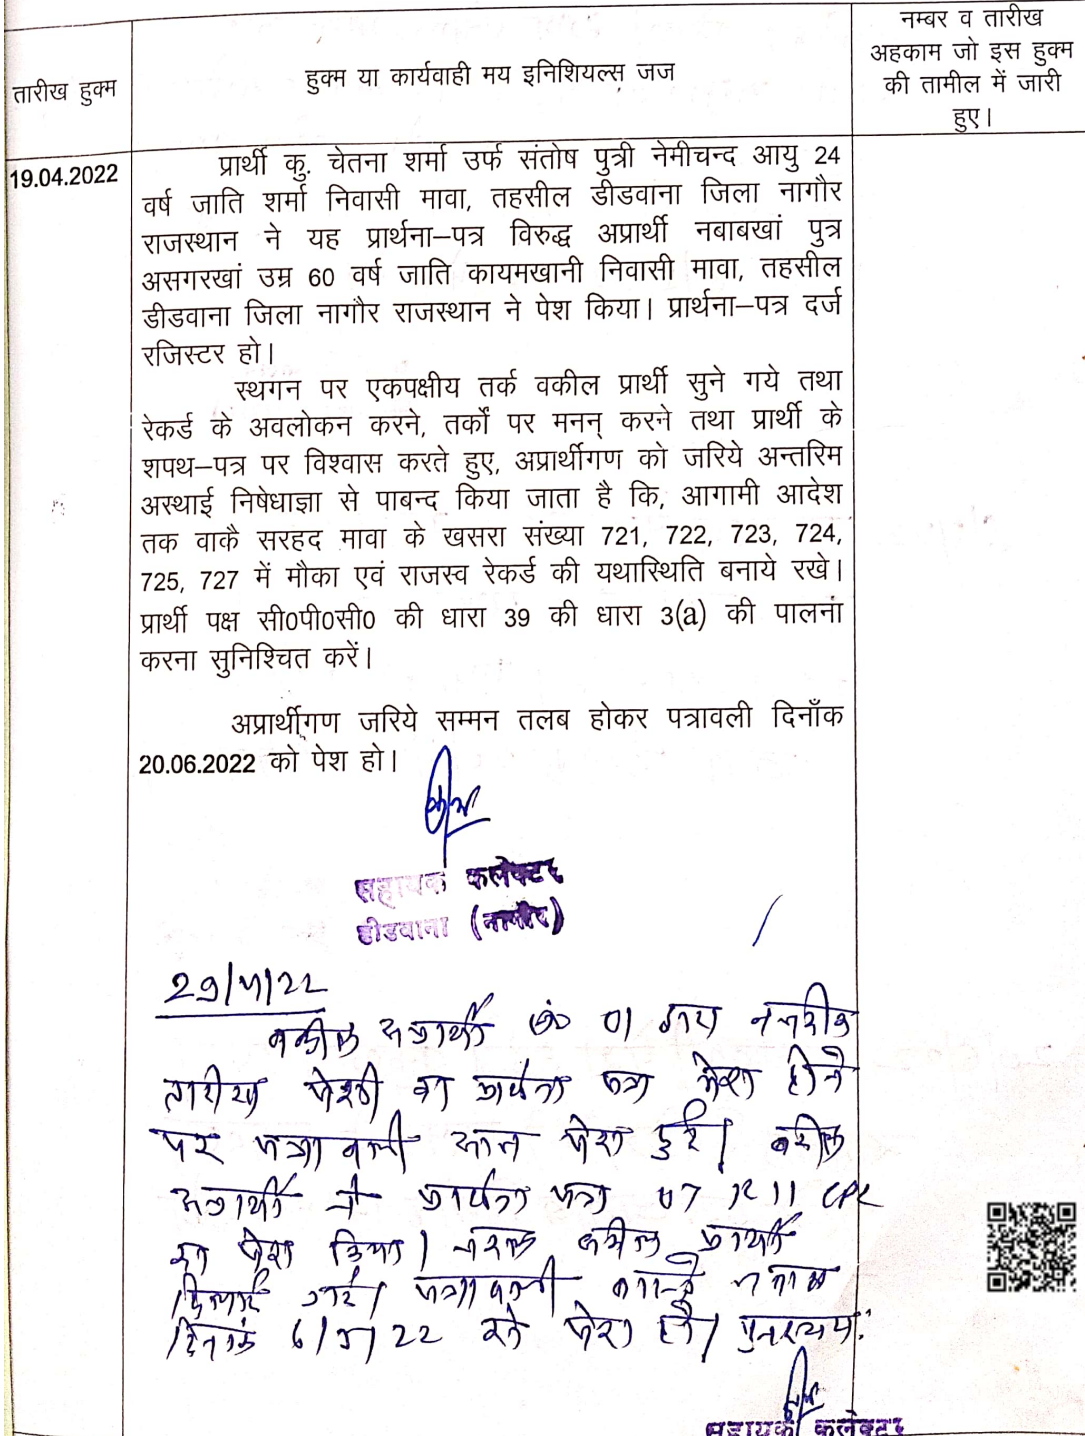 तारीख हुक्म
हुक्म या कार्यवाही मय इनिशियल्स जज
नम्बर व तारीख
अहकाम जो इस हुक्म
की तामील में जारी
हुए।
19.04.2022
प्रार्थी कु. चेतना शर्मा उर्फ संतोष पुत्री नेमीचन्द आयु 24
वर्ष जाति शर्मा निवासी मावा, तहसील डीडवाना जिला नागौर
राजस्थान ने यह प्रार्थना–पत्र विरुद्ध अप्रार्थी नबाबखां पुत्र
असगरखां उम्र 60 वर्ष जाति कायमखानी निवासी मावा, तहसील
डीडवाना जिला नागौर राजस्थान ने पेश किया। प्रार्थना–पत्र दर्ज
रजिस्टर हो।
स्थगन पर एकपक्षीय तर्क वकील प्रार्थी सुने गये तथा
रेकर्ड के अवलोकन करने, तर्कों पर मनन् करने तथा प्रार्थी के
शपथ–पत्र पर विश्वास करते हुए, अप्रार्थीगण को जरिये अन्तरिम
अस्थाई निषेधाज्ञा से पाबन्द किया जाता है कि, आगामी आदेश
तक वाकै सरहद मावा के खसरा संख्या 721, 722, 723, 724,
725, 727 में मौका एवं राजस्व रेकर्ड की यथास्थिति बनाये रखे।
प्रार्थी पक्ष सी0पी0सी0 की धारा 39 की धारा 3(a) की पालना
करना सुनिश्चित करें।
अप्रार्थीगण जरिये सम्मन तलब होकर पत्रावली दिनाँक
20.06.2022 को पेश हो।
सहायक कलेक्टर
डीडवाना (नागौर)
29/4/22
वकील अप्रार्थी सं0 01 द्वारा नजदीक
तारीख पेशी का प्रार्थना पत्र पेश होने
पर पत्रावली आज पेश हुई। वकील
अप्रार्थी ने प्रार्थना पत्र 07 R 11 CPC
का पेश किया। नकल वकील प्रार्थी
दिलाई गई। पत्रावली वास्ते जवाब
दिनांक 6/5/22 को पेश हो।
सहायक कलेक्टर